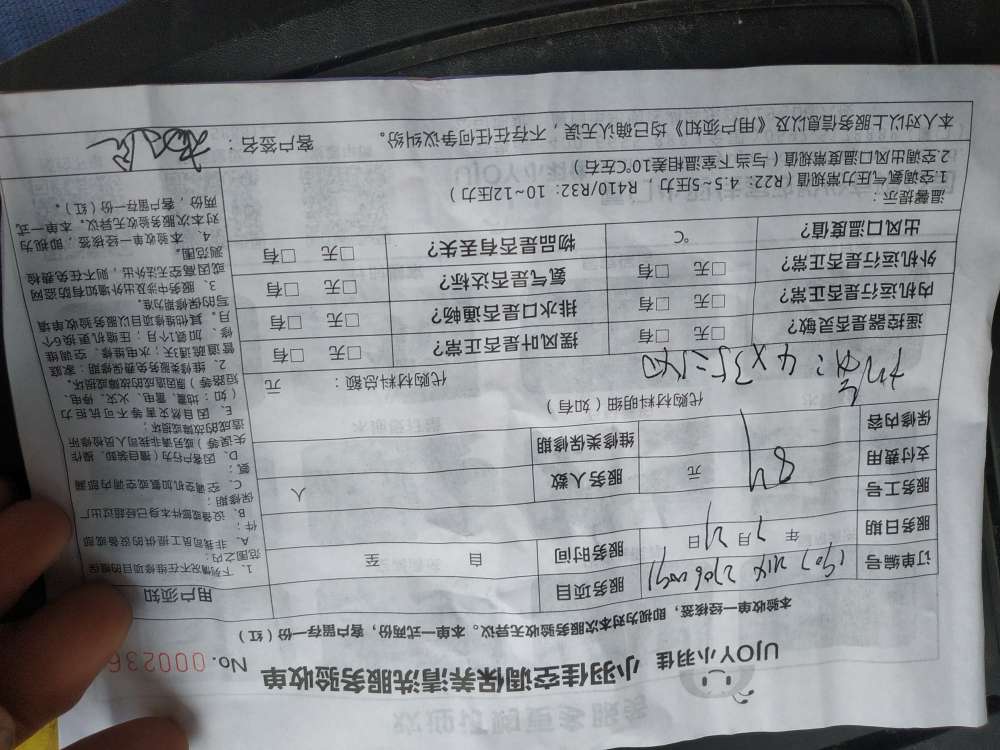 UJOY小羽佳 小羽佳空调保养清洗服务验收单
No. 000236
本验收单一经核签，即视为对本次服务验收无异议。本单一式两份，客户留存一份（红）
订单编号 服务项目
服务日期 年 7月21日 服务时间 自 至
服务工号
支付费用 84 元 服务人数 人
保修内容 维修类保修期
代购材料明细（如有）
4×35=140
代购材料总额： 元
遥控器是否灵敏？ □无 □有 摆风叶是否正常？ □无 □有
内机运行是否正常？ □无 □有 排水口是否通畅？ □无 □有
外机运行是否正常？ □无 □有 氨气是否达标？ □无 □有
出风口温度值？ ℃ 物品是否有丢失？ □无 □有
温馨提示：
1.空调氨气压力常规值（R22：4.5~5压力，R410/R32：10~12压力）
2空调出风口温度常规值（与当下室温相差10℃左右）
本人对以上服务信息以及《用户须知》均已确认无误，不存在任何争议纠纷。 客户签名：
用户须知
1、下列情况不在维修项目的保
范围之内：
A、非我司员工提供的设备或部
件；
B、设备或部件本身已经超过出厂
保修期；
C、空调加氨或空调内部漏
氨；
D、因客户行为（擅自装卸、操作
失误等）或另请非我司人员检修所
造成的故障或损坏；
E、因自然灾害等不可抗拒力
（如：地震、雷电、火灾、停电、
短路等）原因造成的故障或损坏。
2、维修类服务免费保修期：家庭
管道疏通3天；水电维修、空调维
修、加氨1个月；压缩机更换6个
月。其他维修项目以服务验收单填
写的保修期为准。
3、服务中涉及外墙如有防盗网
或因高空无法外出，则不在免费检
测范围。
4、本验收单一经核签，即视为
对本次服务验收无异议。本单一式
两份，客户留存一份（红）。